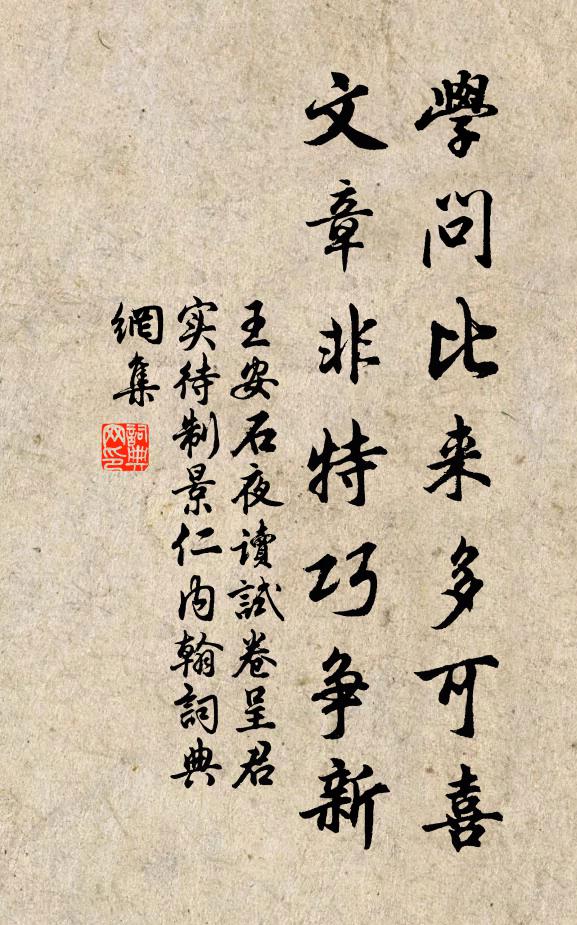 學問比来多可喜
文章非特巧争新
王安石夜讀試卷呈君
实待制景仁内翰詞典
網集
詞典
网印